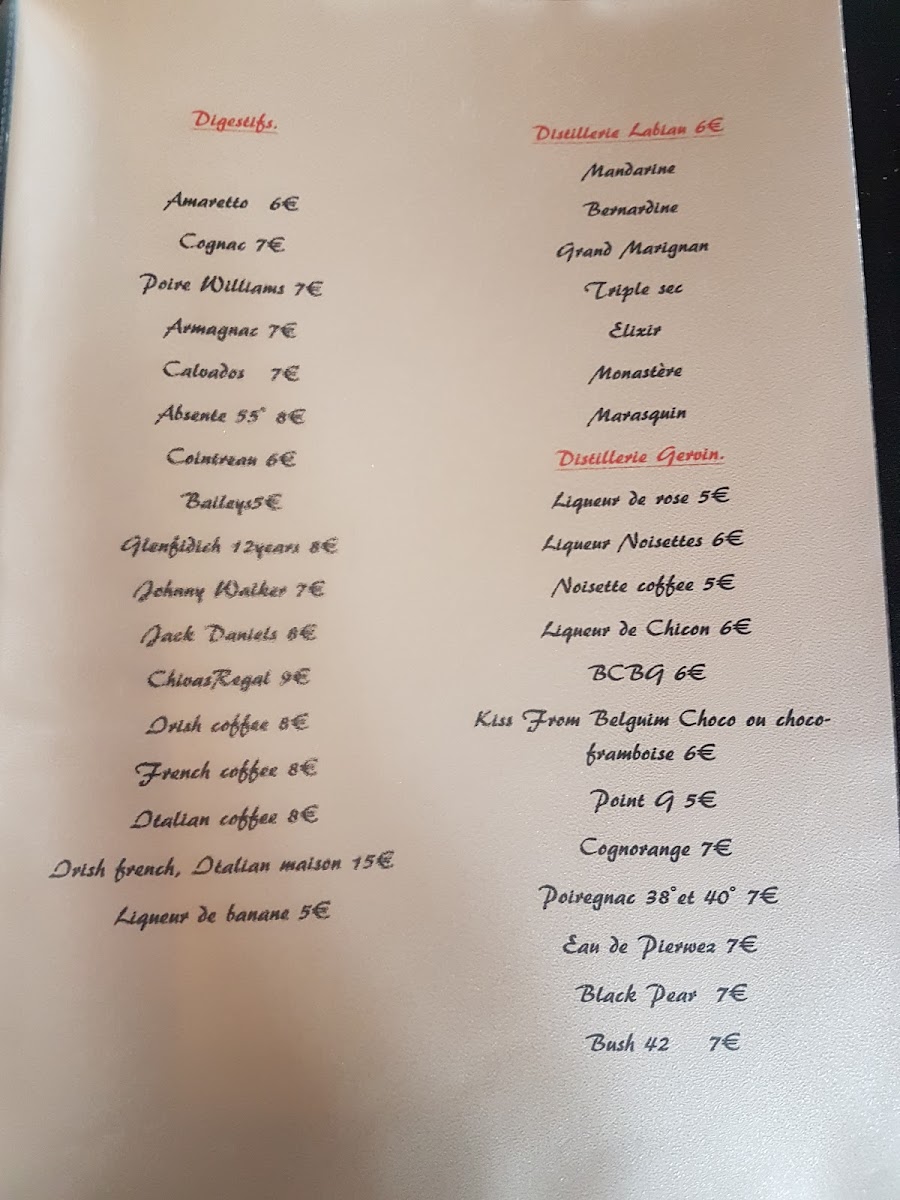 Digestifs.
Amaretto 6€
Cognac 7€
Poire Williams 7€
Armagnac 7€
Calvados 7€
Absente 55° 8€
Cointreau 6€
Baileys5€
Glenfidich 12years 8€
Johnny Walker 7€
Jack Daniels 8€
ChivasRegal 9€
Irish coffee 8€
French coffee 8€
Italian coffee 8€
Irish french, Italian maison 15€
Liqueur de banane 5€
Distillerie Labiau 6€
Mandarine
Bernardine
Grand Marignan
Triple sec
Elixir
Monastère
Marasquin
Distillerie Gervin.
Liqueur de rose 5€
Liqueur Noisettes 6€
Noisette coffee 5€
Liqueur de Chicon 6€
BCBG 6€
Kiss From Belguim Choco ou choco-
framboise 6€
Point G 5€
Cognorange 7€
Poiregnac 38°et 40° 7€
Eau de Pierwez 7€
Black Pear 7€
Bush 42 7€